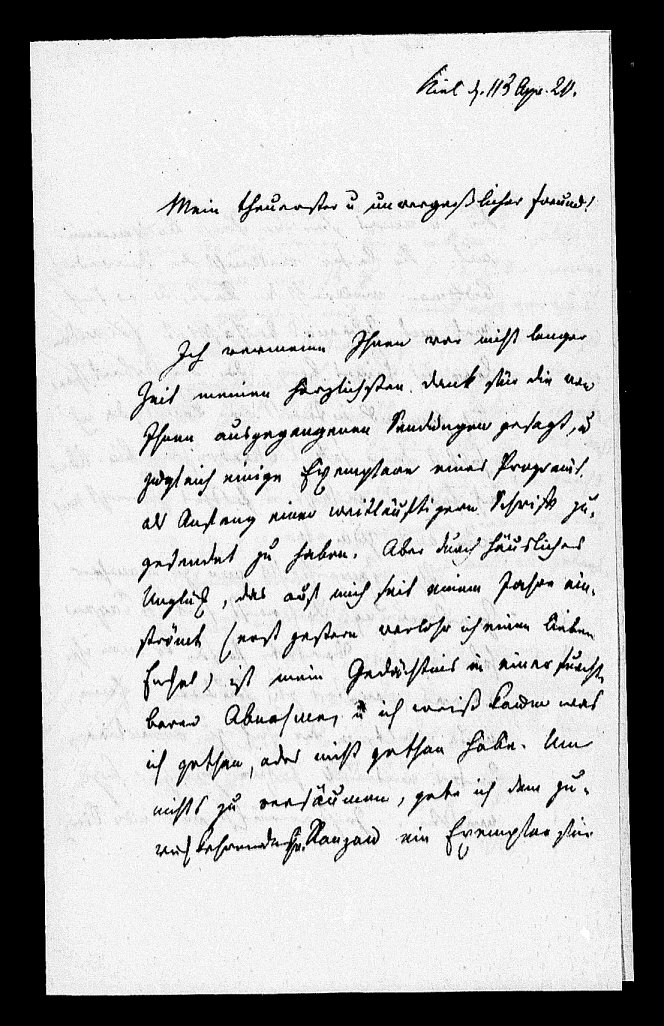 Kiel d. 113 Apr. 21.
Mein theuerster u unvergeßlicher Freund!
Ich vermeine Ihnen vor nicht langer
Zeit meinen herzlichsten Dank für die von
Ihnen ausgegangenen Sendungen gesagt, u
zugleich einige Exemplare eines Programs.
als Anfang einer weitläuftigern Schrift zu-
gesendet zu haben. Aber durch häusliches
Unglück, das auf mich seit einem Jahre ein-
strömt (erst gestern verlohr ich einen lieben
Enkel) ist mein Gedächtnis in einer furcht-
baren Abnahme, u ich weiß kaum was
ich gethan, oder nicht gethan habe. Um
nichts zu versäumen, gebe ich dem zu-
rückkehrenden Hr. Ranzau ein Exemplar für